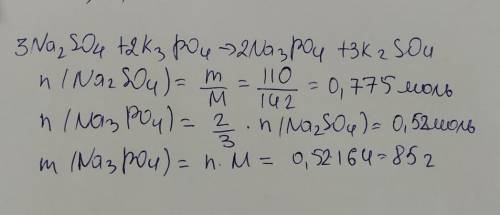 3Na₂SO₄ + 2K₃PO₄ → 2Na₃PO₄ + 3K₂SO₄
n(Na₂SO₄) = m/M = 110/142 = 0,775 моль
n(Na₃PO₄) = 2/3 · n(Na₂SO₄) = 0,52 моль
m(Na₃PO₄) = n · M = 0,52164 = 85 г